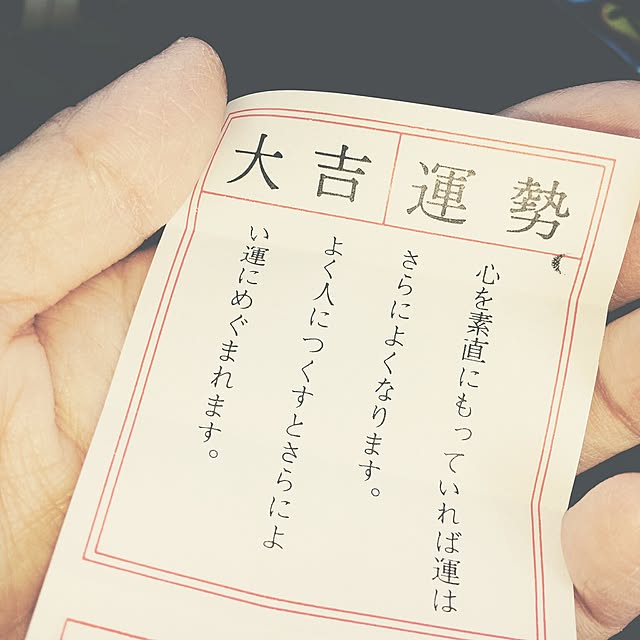 大吉
運勢
心を素直にもっていれば運は
さらによくなります。
よく人につくすとさらによ
い運にめぐまれます。